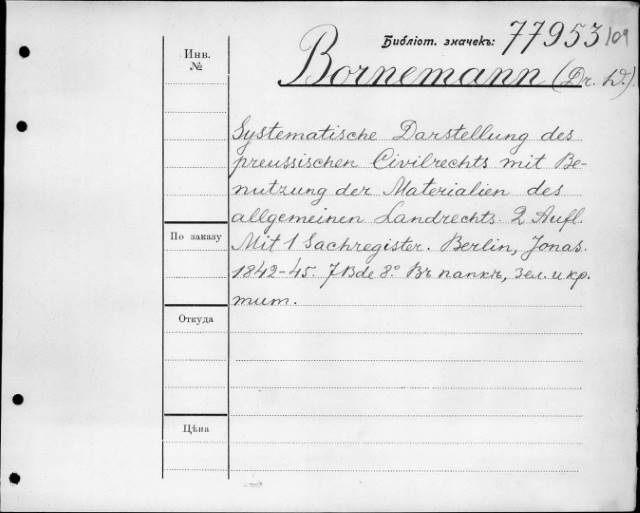 Библіот. значекъ: 77953/09
Инв.
№
Bornemann (Dr. W.).
Systematische Darstellung des
preussischen Civilrechts mit Be-
nutzung der Materialien des
allgemeinen Landrechts. 2 Aufl.
По заказу
Mit 1 Sachregister. Berlin, Jonas.
1842-45. 7 Bde 8.° Въ папкѣ, зел. и кр.
тит.
Откуда
Цѣна